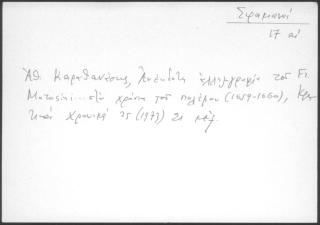 Σφακιανά
17 αι
Ἀθ Καραθανάσης, Ἀνέκδοτη ἀλληλογραφία τοῦ Fr.
Morosini ... στὰ χρόνια τοῦ πολέμου (1659-1660), Κρη-
τικά Χρονικά 25 (1973) 21